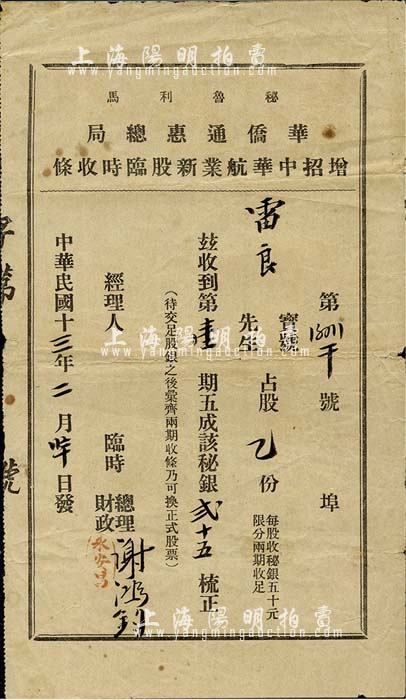 上海陽明拍賣
www.yangmingauction.com
秘魯利馬
華僑通惠總局
增招中華航業新股臨時收條
第 號 埠
雷良
寶號
先生
占股 乙 份
每股收秘銀五十元
限分兩期收足
玆收到第 壹 期五成該秘銀 弍十五 梳正
(待交足股銀之後彙齊兩期收條乃可換正式股票)
經理人
臨時
總理
財政
謝
永安昌
中華民國十三年二月 日發
字第 號
上海陽明拍賣
www.yangmingauction.com
上海陽明拍賣
www.yangmingauction.com